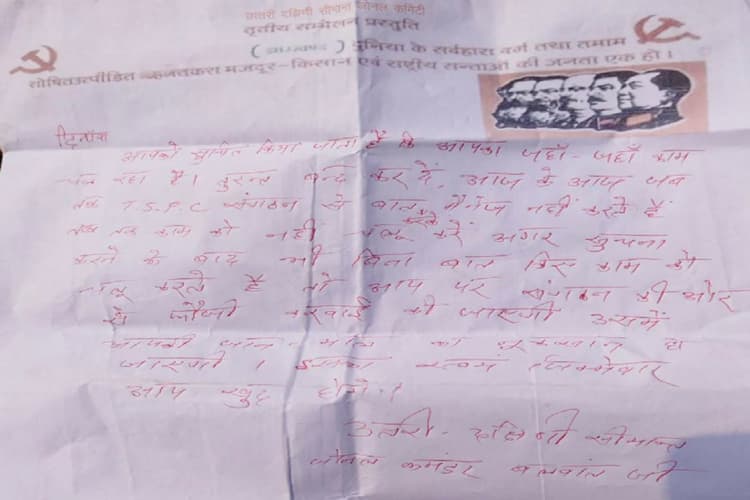 उत्तरी दक्षिणी सीमांत जोनल कमिटी
तृतीय सम्मेलन प्रस्तुति
( झारखण्ड ) दुनिया के सर्वहारा वर्ग तथा तमाम
शोषितउत्पीडित मजदूर-किसान एवं राष्ट्रीय सत्ताओं की जनता एक हो।
दिनांक
आपको सुचित किया जाता है कि आपका जहाँ-जहाँ काम
चल रहा है। तुरन्त बन्द कर दें, आज के आज जब
तक T.S.P.C संगठन से बात मैनेज नहीं करते हैं
तब तक काम को नहीं चालू करें अगर सुचना
करने के बाद भी बिना बात किए काम को
चालू करते हैं तो आप पर संगठन की ओर
से फौजी करवाई की जाएगी उसमें
आपकी जान माल का नुकसान
जाएगी । इसका स्वयं जिम्मेवार
आप खुद होंगे।
उतरी-दक्षिणी सीमान्त
जोनल कमांडर बलवंत जी